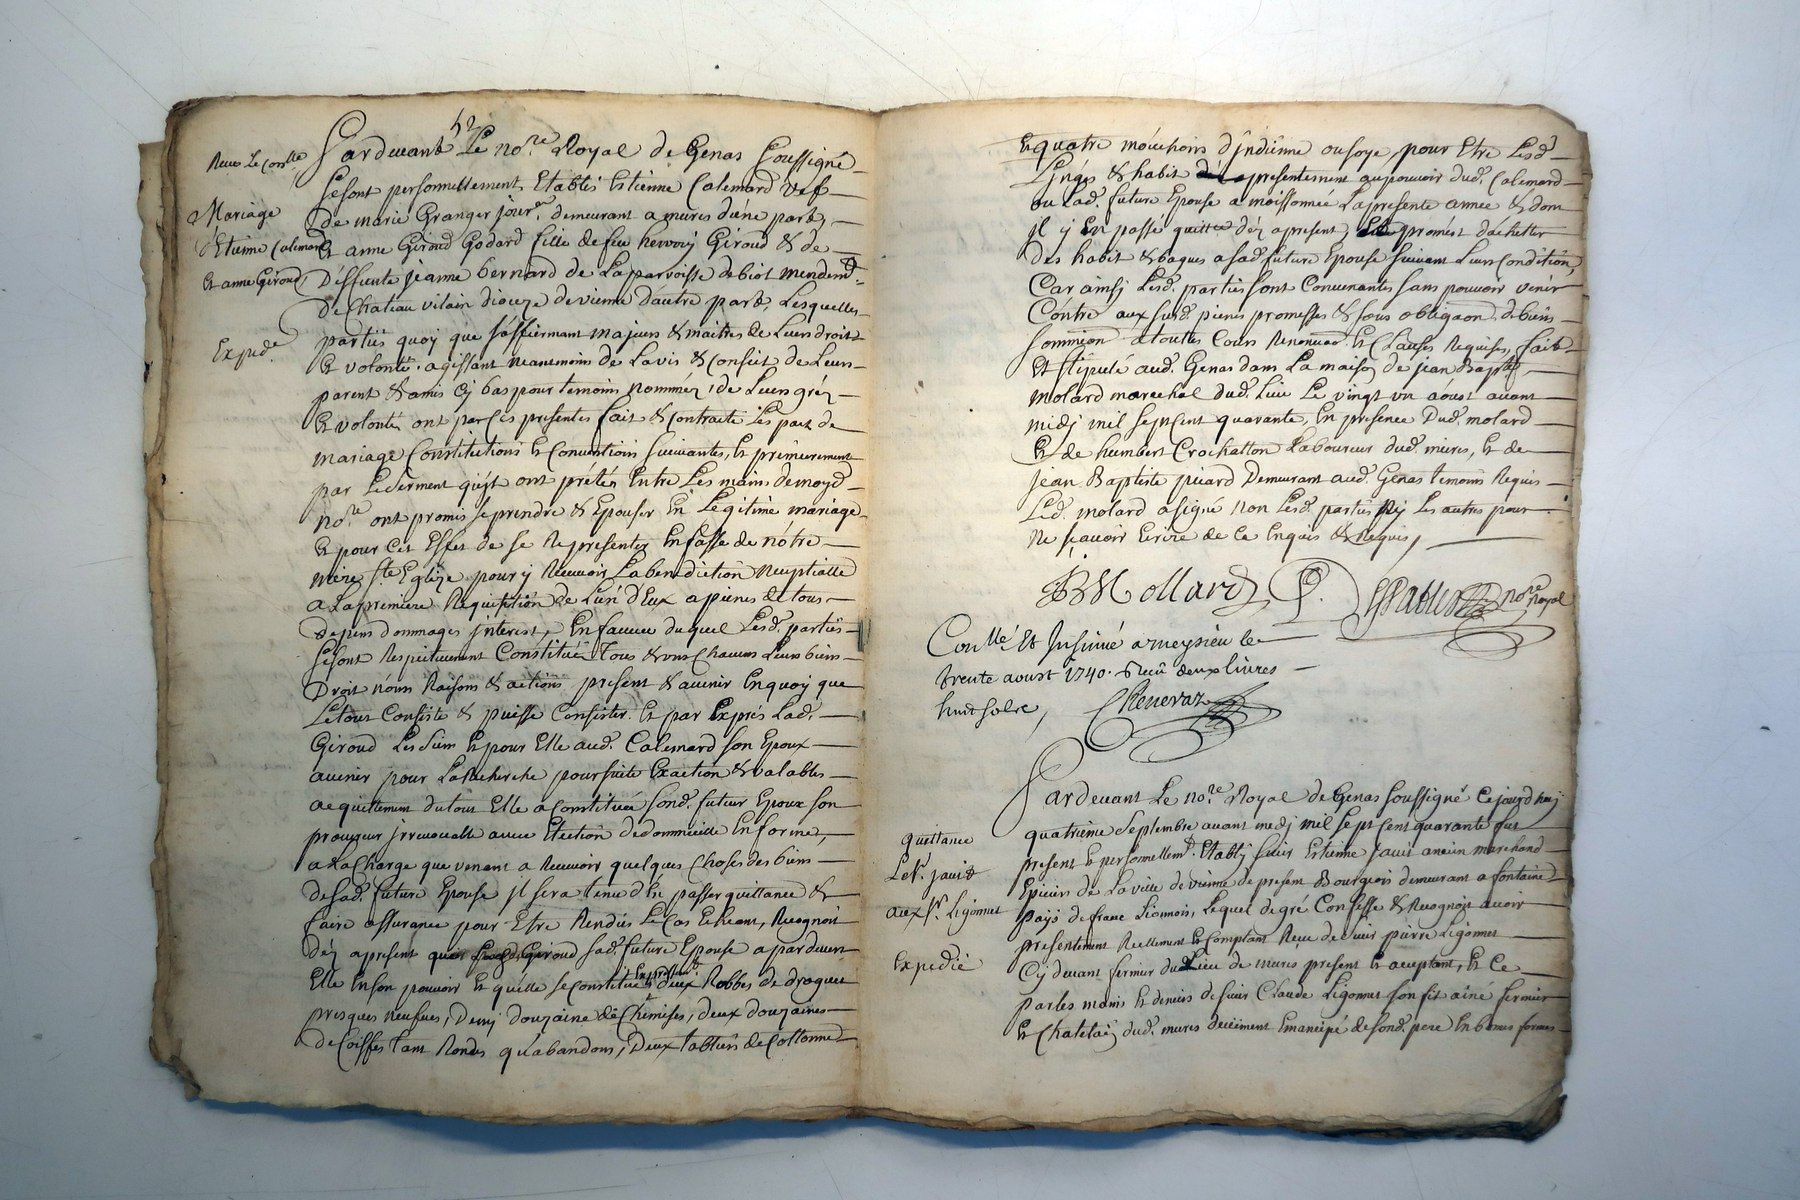 52
Pardevant Le no.re Royal de Genas Soussigné
Sesont personnellement Etablis Estienne Calemard vef
Mariage
De marie Granger jour.er demeurant a mures d'une part,
d'Etienne Calemard
Et anne Giroud Godard fille de feu Giroud & de
Et anne Giroud
Deffunte jeanne bernard de La parroisse de biol mendem.t
De Chateau vilain dioceze de vienne d'autre part, Lesquelles
Exped.e
parties quoy que s'affiermant majeurs & maitres de Leurs droits
Et volonté. agissant neantmoins de Lavis & Conseit de Leurs
parent & amis Cy bas pour temoins nommez, de Leurs gréz
Et volontés ont par Ces presentes fait & Contracté Les pact de
mariage Constitutions Et Conventions suivantes, Et premierement
par Le serment qu'jls ont prétéz Entre Les mains de moyd.
no.re ont promis se prendre & Epouser En Legitime mariage
Et pour Cet Effet de se Representer En fasse de nôtre
mere S.te Eglize pour y Recevoir La benediction nuptialle
a La premiere Requisition de L'un d'Eux a peines de tous
depens dommages jnterest, En faveur duquel Lesd. parties
Sesont Respectivement Constitués tous & uns Chacuns Leurs biens
Droit noms Raisons & actions present & avenir En quoy que
Le tout Consiste & puisse Consister. Et par Exprés Lad.
Giroud Les siens Et pour Elle aud. Calemard son Epoux
avenir pour La Recherche poursuite Exaction & valables
acquittement du tout Elle a Constitué sond. futeur Epoux son
procureur jrrevocable avec Election de dommicille En forme,
a La Charge que venant a Recevoir quelques Choses des biens
de sad. future Epouse jl sera tenu d'En passer quittance &
faire assurance pour Etre Rendus Le Cas Echeant, Recognoit
Déz a present Giroud sad. future Epouse a pardevers
Elle En son pouvoir Et qu'elle se Constitue Expressem.t deux Robbes de droguet
presques neufves, Demj douzaine de Chemises, deux douzaines
de Coiffes tant Rondes qu'abandons, Deux tabliers de Cottonne
Et quatre mouchoirs d'jndienne ou soye, pour Etre Lesd.
Linges & habit presentement au pouvoir dud. Calemard
ou Lad. future Epouse a moissonnée La presente année & dont
jl y En passe quittce déz a present, promet d'achetter
des habit & bagues a sad. future Epouse suivant Leurs Condition,
Car ainsj Lesd. parties sont Convenantes sans pouvoir venir
Contre aux susd. peines promesses & sous obligaõn de biens
Sommiõn a toutes Cours Renonca.õn Et Clauses Requises, fait
Et stipulé aud. Genas dans La maison de jean Bapt.e
molard marechal dud. Lieu Le vingt un aoust avant
midj mil septcent quarante, En presence Dud. molard
Et de humbert Crochatton Laboureur dud. mures, Et de
jean Baptiste picard Demeurant aud. Genas temoins Requis
Led. molard a signé non Lesd. parties nj Les autres pour
Ne sçavoir Ecrire de Ce Enquis & Requis,
JB Mollard P. no.re Royal
Con.llé Et Insinué a meysieu le
trente aoust 1740. Reçû deux livres
huit sols,
Chenevaz
Pardevant Le no.re Royal de Genas soussigné Cejourd'huj
quittance
quatrieme Septembre avant medj mil sept Cent quarante fut
present Et personnellem.t Etablj sieur Estienne Janis ancien marchand
Le S.r janis
Epicier de La ville de vienne de present Bourgeois demeurant a fontaine
aux S.rs Ligonnet
pays de franc Lionnois, Lequel de gré Confesse & Recognoit avoir
presentement Reellement Et Comptant Reçu de sieur pierre Ligonnet
Expedié
Cy devant fermier du Lieu de mures present Et aceptant, Et Ce
par les mains Et deniers de sieur Claude Ligonnet son fils ainé fermier
Et Chatelain dud. mures deüement Emancipé de sond. pere En bonnes formes